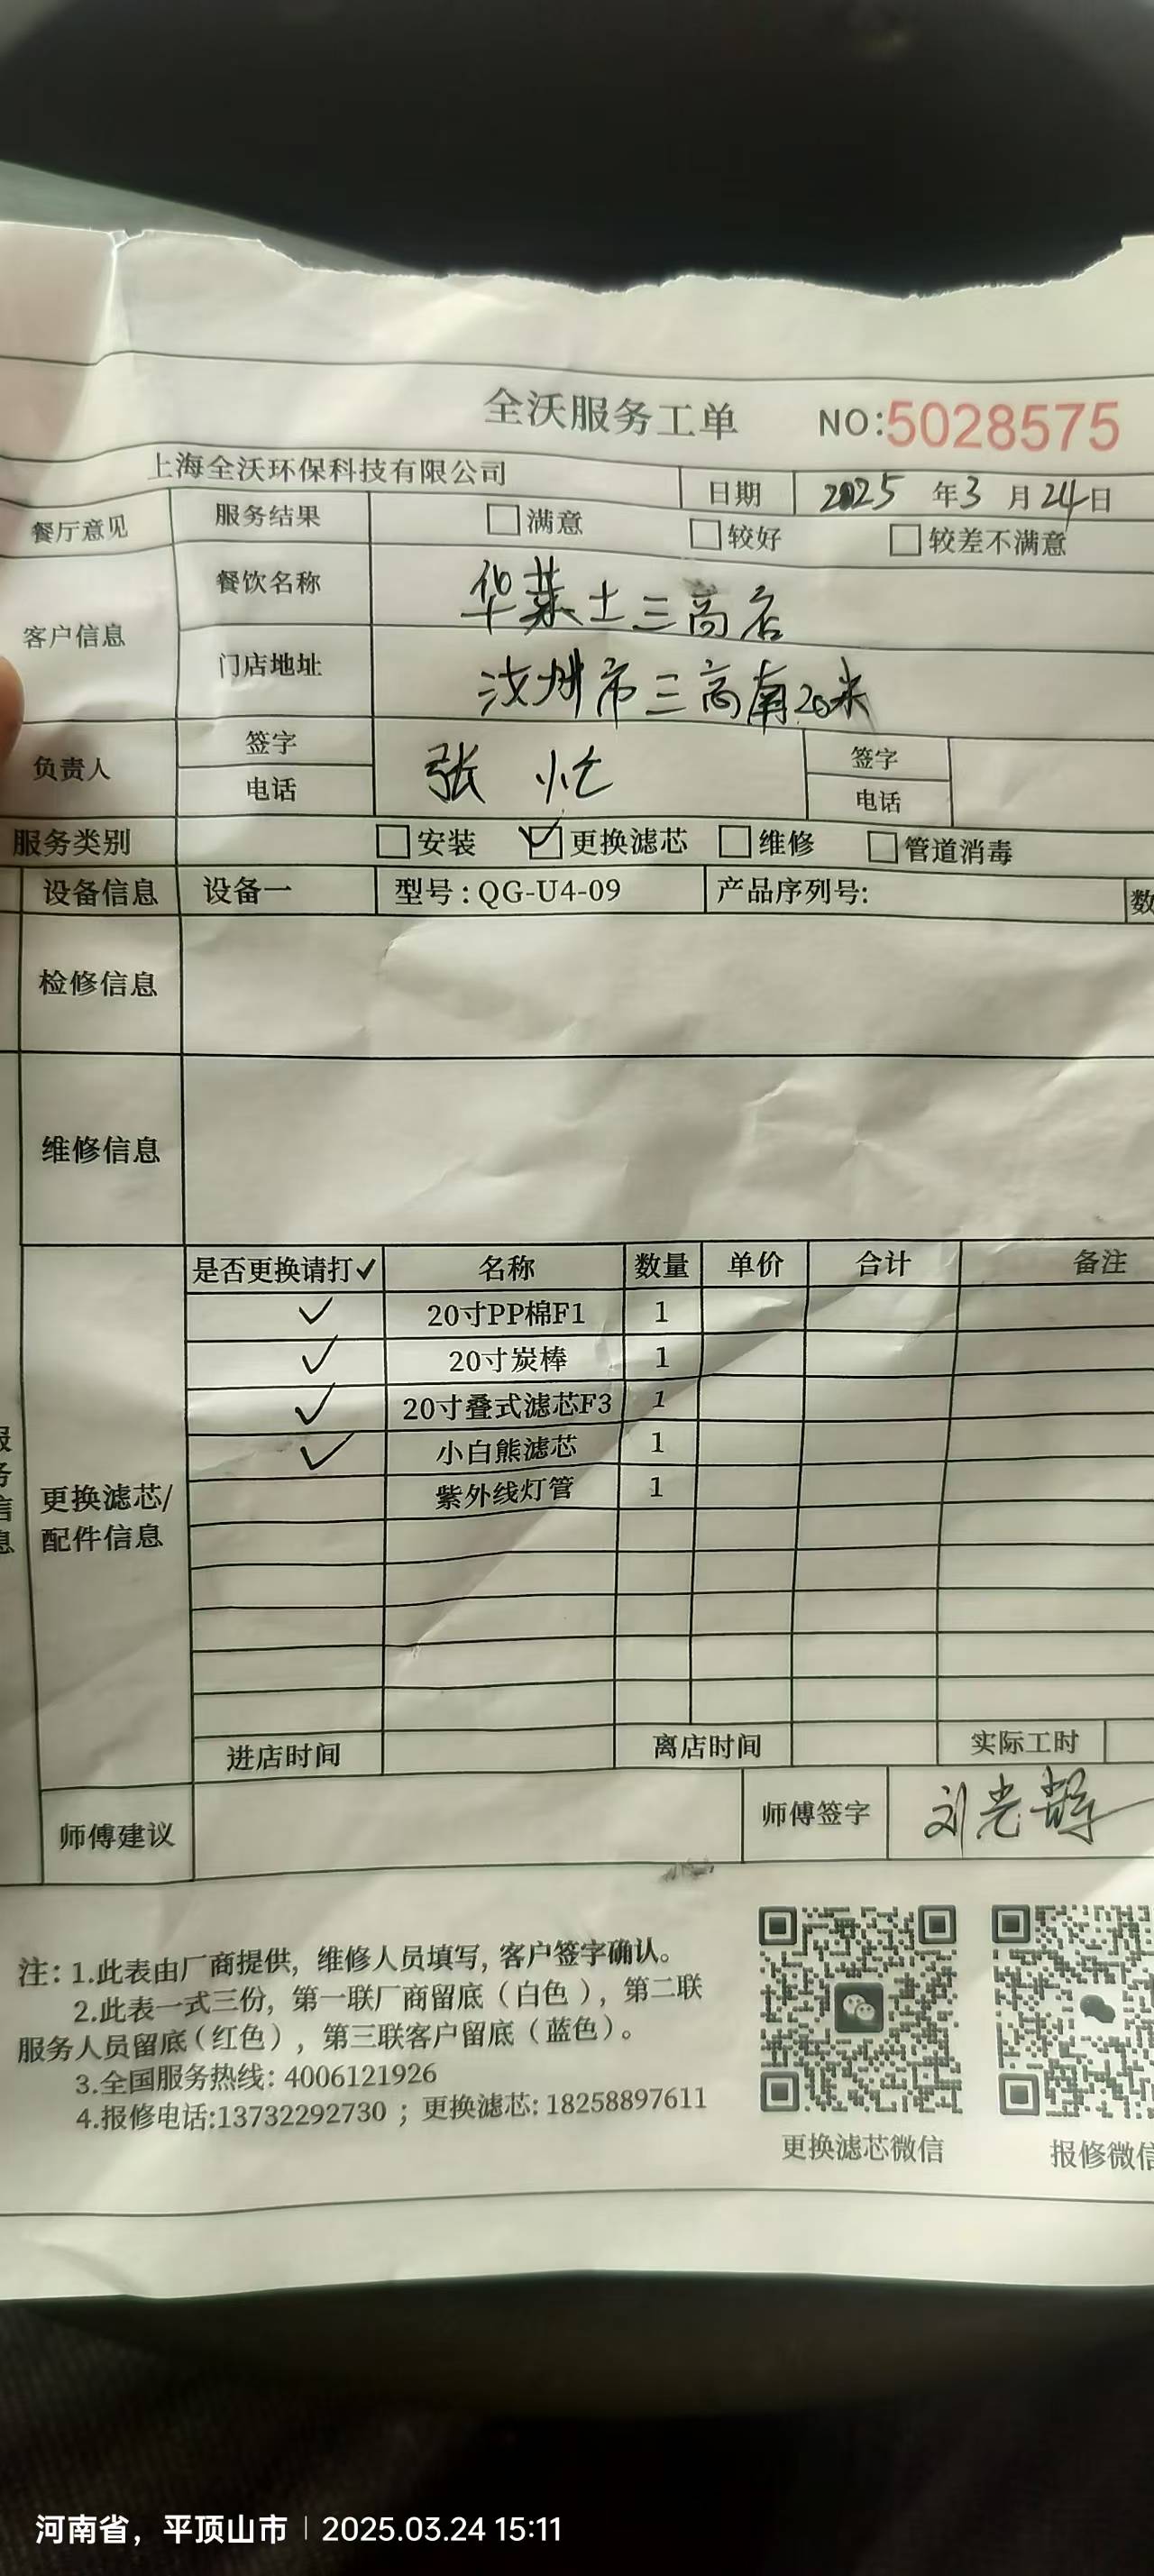 全沃服务工单 NO:5028575
上海全沃环保科技有限公司 日期 2025 年 3 月 24 日
餐厅意见 服务结果 满意 较好 较差不满意
客户信息 餐饮名称 华莱士三高店
门店地址 汝州市三高南20米
负责人 签字 张 签字
电话 电话
服务类别 安装 更换滤芯 维修 管道消毒
设备信息 设备一 型号:QG-U4-09 产品序列号: 数
检修信息
维修信息
服务信息
更换滤芯/配件信息
是否更换请打✓ 名称 数量 单价 合计 备注
✓ 20寸PP棉F1 1
✓ 20寸炭棒 1
✓ 20寸叠式滤芯F3 1
✓ 小白熊滤芯 1
紫外线灯管 1
进店时间 离店时间 实际工时
师傅建议 师傅签字 刘光辉
注: 1.此表由厂商提供, 维修人员填写, 客户签字确认。
2.此表一式三份, 第一联厂商留底(白色), 第二联
服务人员留底(红色), 第三联客户留底(蓝色)。
3.全国服务热线: 4006121926
4.报修电话:13732292730 ; 更换滤芯: 18258897611
更换滤芯微信 报修微信
河南省, 平顶山市 | 2025.03.24 15:11